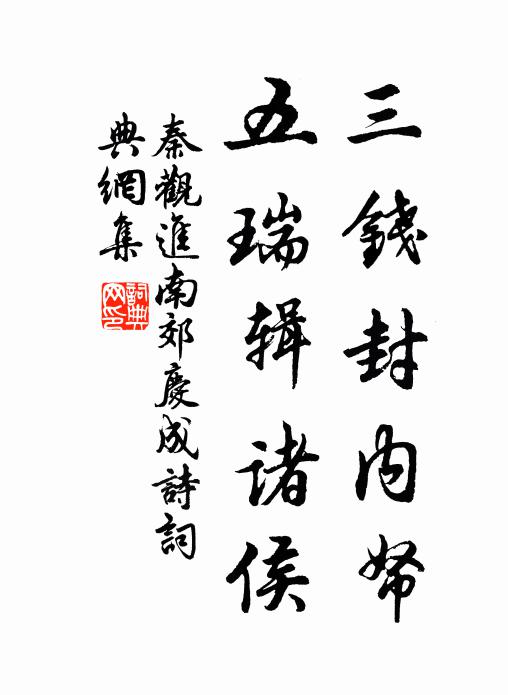 三錢封内帑
五瑞辑诸侯
秦觀進南郊慶成詩詞
典網集
詞典
网印